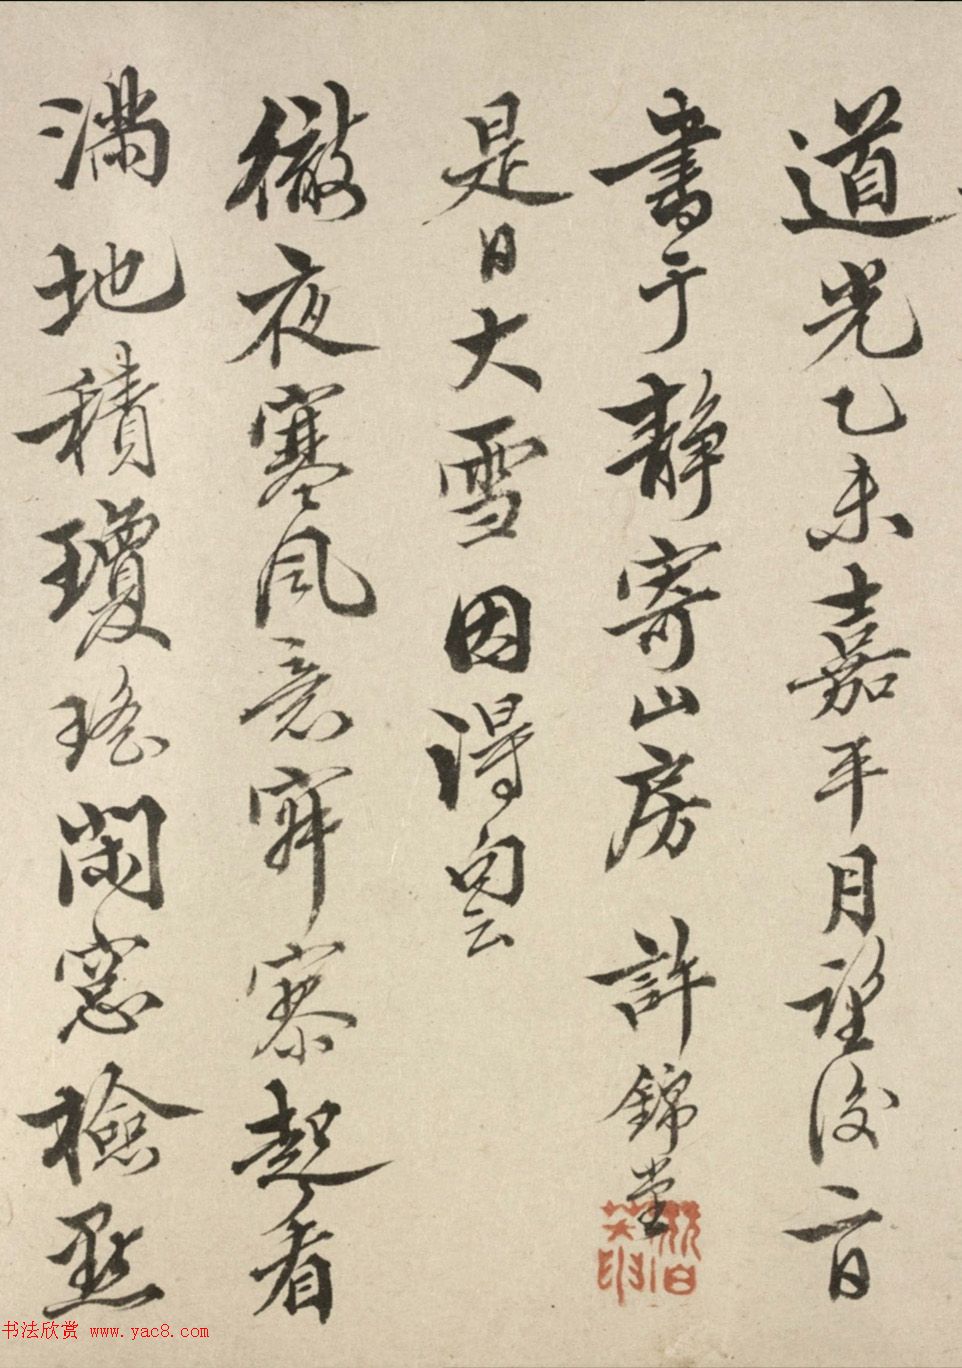 道光乙未嘉平月望後二日
書于靜寄山房 許錦堂
是日大雪因得句云
徹夜寒風意寂寥起看
滿地積瓊瑤閑窓檢點
书法欣赏 www.yac8.com